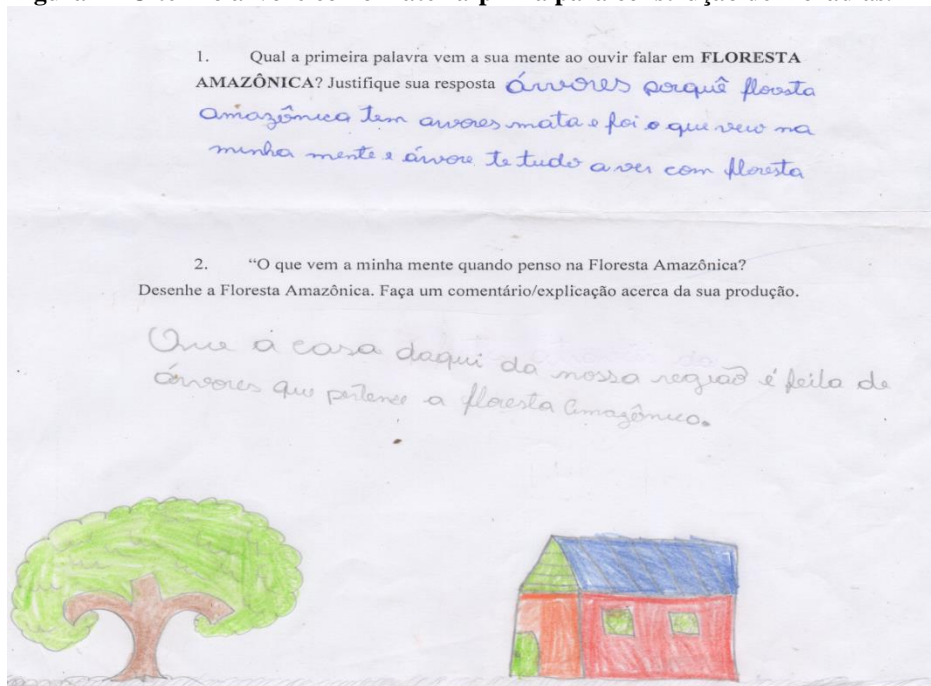 1. Qual a primeira palavra vem a sua mente ao ouvir falar em FLORESTA
AMAZÔNICA? Justifique sua resposta árvores porquê floresta
amazônica tem arvores mata e foi o que veio na
minha mente e árvore te tudo a ver com floresta
2. “O que vem a minha mente quando penso na Floresta Amazônica?
Desenhe a Floresta Amazônica. Faça um comentário/explicação acerca da sua produção.
Que a casa daqui da nossa região é feita de
árvores que pertence a floresta Amazônica.